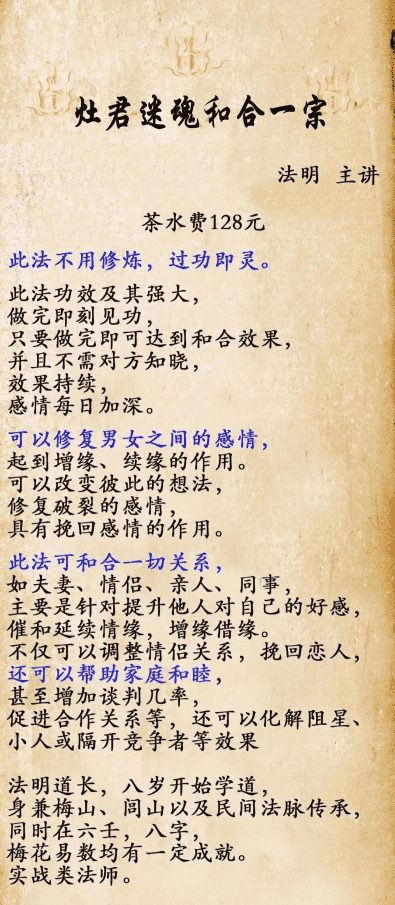 灶君迷魂和合一宗
法明 主讲
茶水费128元
此法不用修炼，过功即灵。
此法功效及其强大，
做完即刻见功，
只要做完即可达到和合效果，
并且不需对方知晓，
效果持续，
感情每日加深。
可以修复男女之间的感情，
起到增缘、续缘的作用。
可以改变彼此的想法，
修复破裂的感情，
具有挽回感情的作用。
此法可和合一切关系，
如夫妻、情侣、亲人、同事，
主要是针对提升他人对自己的好感，
催和延续情缘，增缘借缘。
不仅可以调整情侣关系，挽回恋人，
还可以帮助家庭和睦，
甚至增加谈判几率，
促进合作关系等，还可以化解阻星、
小人或隔开竞争者等效果
法明道长，八岁开始学道，
身兼梅山、闾山以及民间法脉传承，
同时在六壬，八字，
梅花易数均有一定成就。
实战类法师。